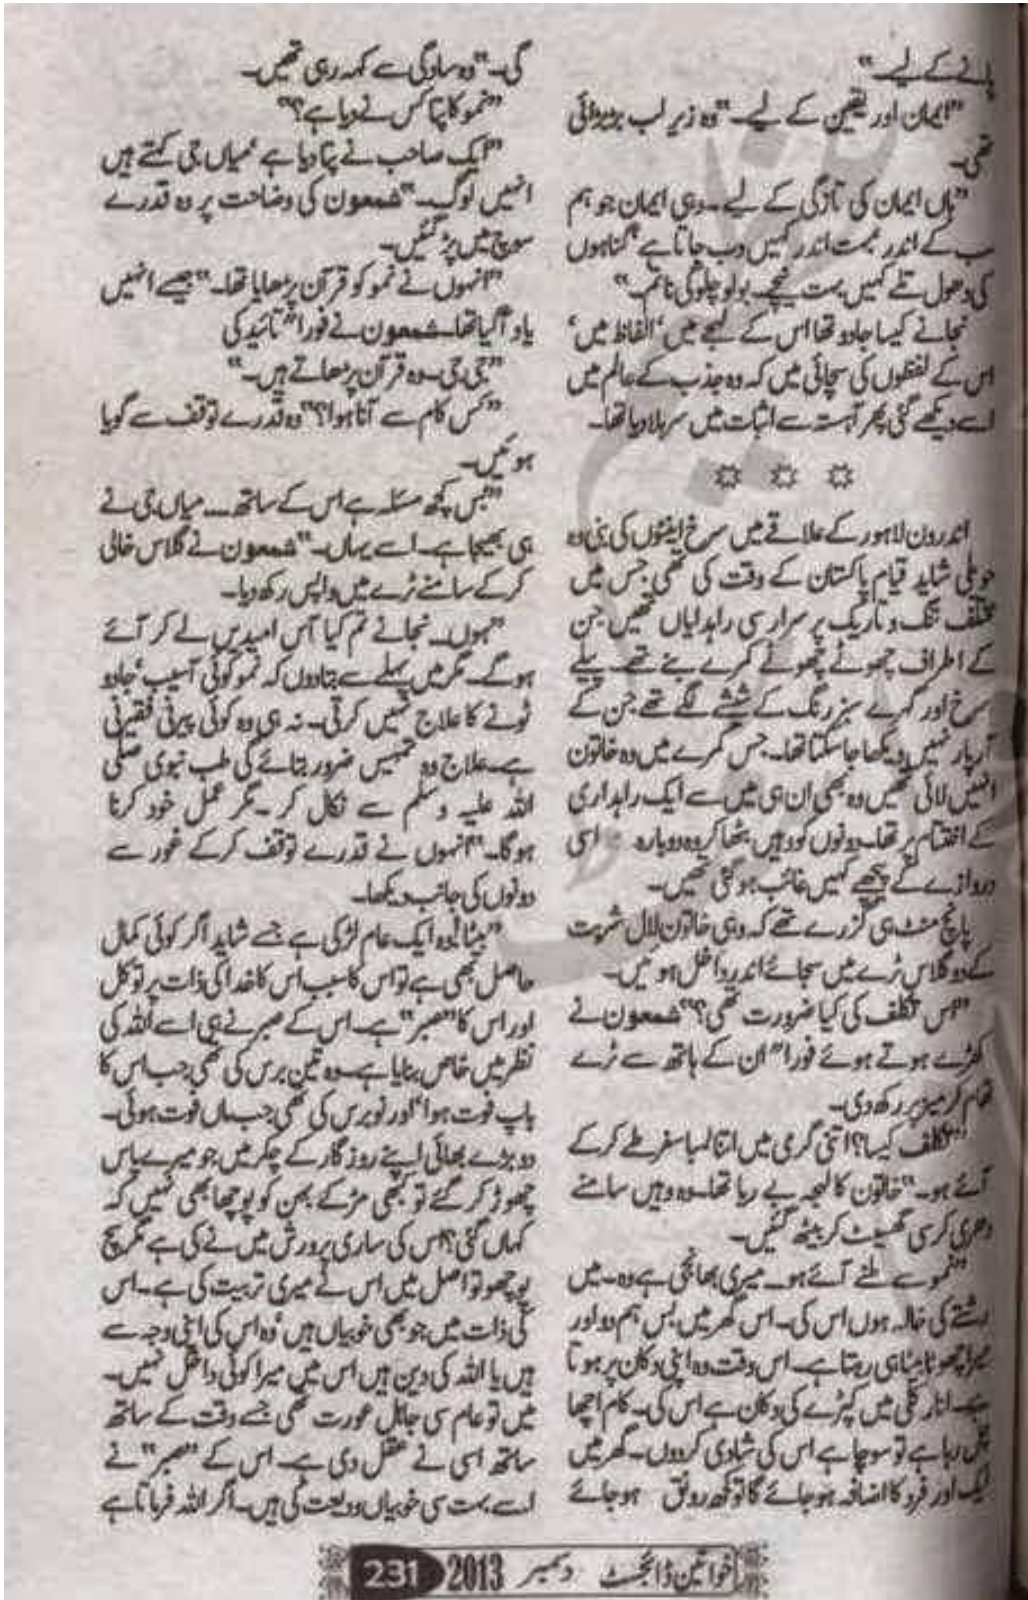 پانے کے لیے۔"
"ایمان اور یقین کے لیے۔" وہ زیر لب بڑبڑائی
تھی۔
"ہاں ایمان کی تازگی کے لیے۔ وہی ایمان جو ہم
سب کے اندر بہت اندر کہیں دب جاتا ہے' گناہوں
کی دھول تلے کہیں بہت نیچے۔ بولو چلو گی نا تم۔"
نجانے کیسا جادو تھا اس کے لہجے میں' الفاظ میں'
اس کے لفظوں کی سچائی میں کہ وہ جذب کے عالم میں
اسے دیکھے گئی پھر آہستہ سے اثبات میں سر ہلا دیا تھا۔
☼ ☼ ☼
اندرون لاہور کے علاقے میں سرخ اینٹوں کی بنی وہ
حویلی شاید قیام پاکستان کے وقت کی تھی جس میں
مختلف تنگ و تاریک پر سرار سی راہداریاں تھیں جن
کے اطراف چھوٹے چھوٹے کمرے بنے تھے۔ پیلے
سرخ اور گہرے سبز رنگ کے شیشے لگے تھے جن کے
آر پار نہیں دیکھا جا سکتا تھا۔ جس کمرے میں وہ خاتون
انہیں لائی تھیں وہ بھی ان ہی میں سے ایک راہداری
کے اختتام پر تھا۔ دونوں کو وہیں بٹھا کر وہ دوبارہ اسی
دروازے کے پیچھے کہیں غائب ہو گئی تھیں۔
پانچ منٹ ہی گزرے تھے کہ وہی خاتون لال شربت
کے دو گلاس ٹرے میں سجائے اندر داخل ہوئیں۔
"اس تکلف کی کیا ضرورت تھی؟" شمعون نے
کھڑے ہوتے ہوئے فورا" ان کے ہاتھ سے ٹرے
تھام کر میز پر رکھ دی۔
"تکلف کیسا؟ اتنی گرمی میں اتنا لمبا سفر طے کر کے
آئے ہو۔" خاتون کا لہجہ بے ریا تھا۔ وہ وہیں سامنے
دھری کرسی گھسیٹ کر بیٹھ گئیں۔
"نمو سے ملنے آئے ہو۔ میری بھانجی ہے وہ۔ میں
رشتے کی خالہ ہوں اس کی۔ اس گھر میں بس ہم دو اور
میرا چھوٹا بیٹا ہی رہتا ہے۔ اس وقت وہ اپنی دکان پر ہوتا
ہے۔ انار کلی میں کپڑے کی دکان ہے اس کی۔ کام اچھا
چل رہا ہے تو سوچا ہے اس کی شادی کردوں۔ گھر میں
ایک اور فرد کا اضافہ ہو جائے گا تو کچھ رونق ہو جائے
گی۔" وہ سادگی سے کہہ رہی تھیں۔
"نمو کا پتا کس نے دیا ہے؟"
"ایک صاحب نے پتا دیا ہے' میاں جی کہتے ہیں
انہیں لوگ۔" شمعون کی وضاحت پر وہ قدرے
سوچ میں پڑ گئیں۔
"انہوں نے نمو کو قرآن پڑھایا تھا۔" جیسے انہیں
یاد آ گیا تھا۔ شمعون نے فورا" تائید کی
"جی جی۔ وہ قرآن پڑھاتے ہیں۔"
"کس کام سے آنا ہوا؟" وہ قدرے توقف سے گویا
ہوئیں۔
"بس کچھ مسئلہ ہے اس کے ساتھ۔۔۔ میاں جی نے
ہی بھیجا ہے۔ اسے یہاں۔" شمعون نے گلاس خالی
کر کے سامنے ٹرے میں واپس رکھ دیا۔
"ہوں۔ نجانے تم کیا آس امیدیں لے کر آئے
ہو گے۔ مگر میں پہلے سے بتادوں کہ نمو کوئی آسیب' جادو
ٹونے کا علاج نہیں کرتی۔ نہ ہی وہ کوئی پیرنی فقیرنی
ہے۔ علاج وہ تمہیں ضرور بتائے گی طب نبوی صلی
اللہ علیہ وسلم سے نکال کر۔ مگر عمل خود کرنا
ہوگا۔" انہوں نے قدرے توقف کر کے غور سے
دونوں کی جانب دیکھا۔
"بیٹا! وہ ایک عام لڑکی ہے جسے شاید اگر کوئی کمال
حاصل بھی ہے تو اس کا سبب اس کا خدا کی ذات پر توکل
اور اس کا "صبر" ہے۔ اس کے صبر نے ہی اسے اللہ کی
نظر میں خاص بنایا ہے۔ وہ تین برس کی تھی جب اس کا
باپ فوت ہوا' اور نو برس کی تھی جب ماں فوت ہوئی۔
دو بڑے بھائی اپنے روزگار کے چکر میں جو میرے پاس
چھوڑ کر گئے تو کبھی مڑ کے بہن کو پوچھا بھی نہیں کہ
کہاں گئی؟ اس کی ساری پرورش میں نے کی ہے مگر سچ
پوچھو تو اصل میں اس نے میری تربیت کی ہے۔ اس
کی ذات میں جو بھی خوبیاں ہیں' وہ اس کی اپنی وجہ سے
ہیں یا اللہ کی دین ہیں اس میں میرا کوئی داخل نہیں۔
میں تو عام سی جاہل عورت تھی جسے وقت کے ساتھ
ساتھ اسی نے عقل دی ہے۔ اس کے "صبر" نے
اسے بہت سی خوبیاں ودیعت کی ہیں۔ اگر اللہ فرماتا ہے
خواتین ڈائجسٹ دسمبر 2013 231